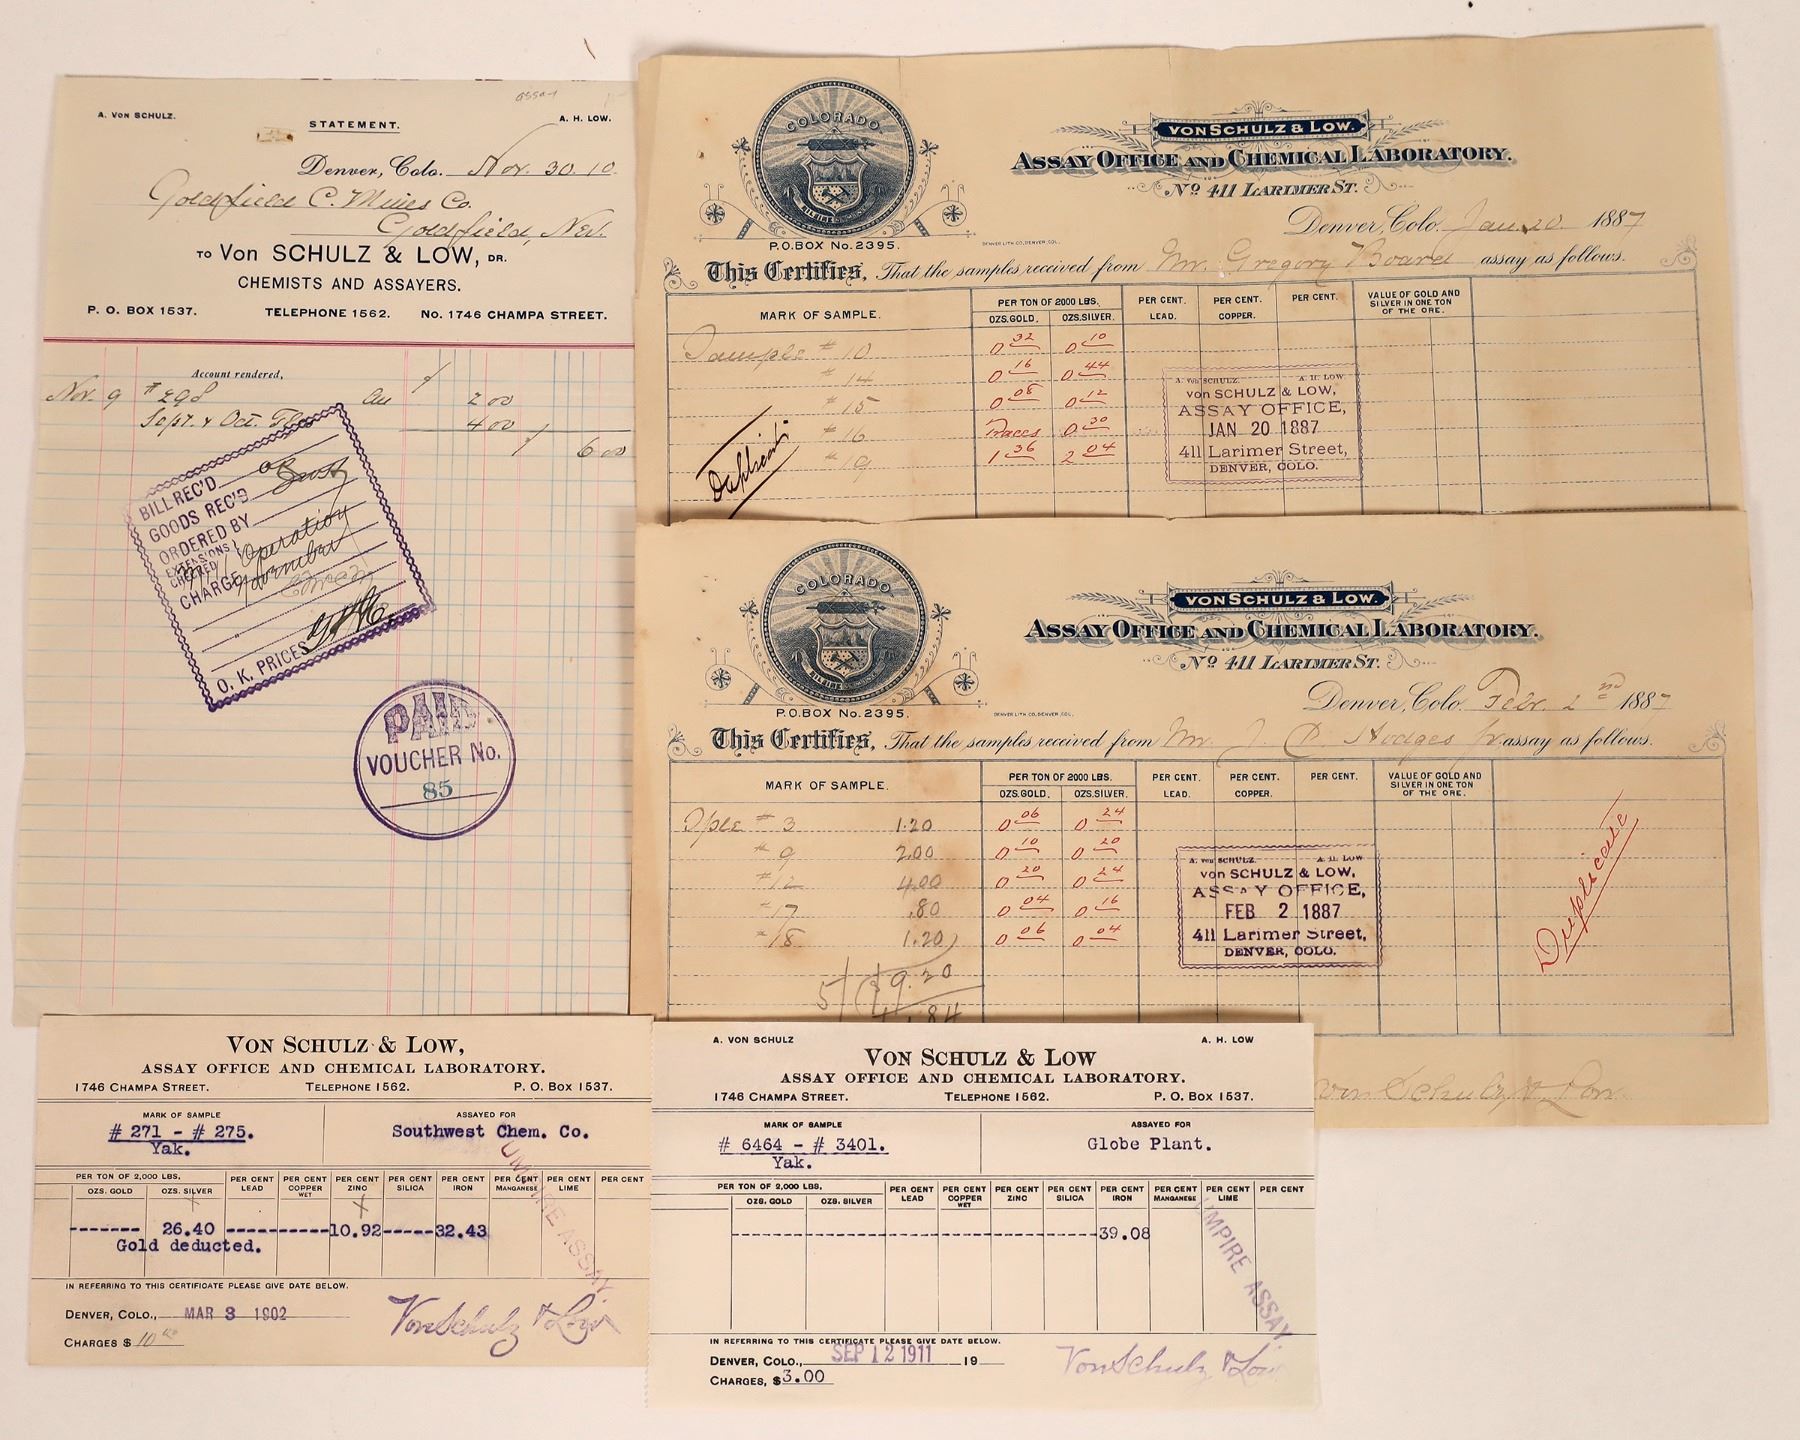 assay
A. VON SCHULZ.
A. H. LOW.
STATEMENT.
Denver, Colo. Nov. 30 10
Goldfield C. Mines Co.
Goldfield, Nev.
TO VON SCHULZ & LOW, DR.
CHEMISTS AND ASSAYERS.
P. O. BOX 1537. TELEPHONE 1562. No. 1746 CHAMPA STREET.
Account rendered,
Nov. 9 # 298 Au 2 00
Sept. & Oct. 4 00
6 00
BILL REC'D
GOODS REC'D
ORDERED BY
EXTENSIONS CHECKED
CHARGE
Operation
O. K. PRICES
PAID
VOUCHER No.
85
COLORADO
P.O.BOX No. 2395.
DENVER LITH CO, DENVER, COL.
VON SCHULZ & LOW.
ASSAY OFFICE AND CHEMICAL LABORATORY.
No 411 LARIMER ST.
Denver, Colo. Jan. 20 1887
This Certifies, That the samples received from Mr. Gregory Board assay as follows.
MARK OF SAMPLE. PER TON OF 2000 LBS. PER CENT. LEAD. PER CENT. COPPER. PER CENT. VALUE OF GOLD AND SILVER IN ONE TON OF THE ORE.
OZS. GOLD. OZS. SILVER.
Sample # 10 0 32 0 10
# 14 0 16 0 44
# 15 0 08 0 12
# 16 Traces 0 30
# 19 1 36 2 04
A. von SCHULZ. A. H. LOW
von SCHULZ & LOW,
ASSAY OFFICE,
JAN 20 1887
411 Larimer Street,
DENVER, COLO.
COLORADO
P.O.BOX No. 2395.
DENVER LITH CO, DENVER, COL.
VON SCHULZ & LOW.
ASSAY OFFICE AND CHEMICAL LABORATORY.
No 411 LARIMER ST.
Denver, Colo. Febr. 2nd 1887
This Certifies, That the samples received from Mr. J. Hodges Jr. assay as follows.
MARK OF SAMPLE. PER TON OF 2000 LBS. PER CENT. LEAD. PER CENT. COPPER. PER CENT. VALUE OF GOLD AND SILVER IN ONE TON OF THE ORE.
OZS. GOLD. OZS. SILVER.
Sple # 3 1.20 0 06 0 24
# 9 2.00 0 10 0 20
# 12 4.00 0 20 0 24
# 17 .80 0 04 0 16
# 18 1.20 0 06 0 04
5 9.20
1.84
A. von SCHULZ. A. H. LOW
von SCHULZ & LOW,
ASSAY OFFICE,
FEB 2 1887
411 Larimer Street,
DENVER, COLO.
Duplicate
von Schulz & Low.
VON SCHULZ & LOW,
ASSAY OFFICE AND CHEMICAL LABORATORY.
1746 CHAMPA STREET. TELEPHONE 1562. P. O. BOX 1537.
MARK OF SAMPLE ASSAYED FOR
# 271 - # 275. Southwest Chem. Co.
Yak.
PER TON OF 2,000 LBS. PER CENT LEAD PER CENT COPPER WET PER CENT ZINC PER CENT SILICA PER CENT IRON PER CENT MANGANESE PER CENT LIME PER CENT
OZS. GOLD OZS. SILVER
------- 26.40 ---------- 10.92 ----- 32.43
Gold deducted.
UMPIRE ASSAY
IN REFERRING TO THIS CERTIFICATE PLEASE GIVE DATE BELOW.
DENVER, COLO., MAR 3 1902
Von Schulz & Low
CHARGES $ 10 00
A. VON SCHULZ A. H. LOW
VON SCHULZ & LOW
ASSAY OFFICE AND CHEMICAL LABORATORY.
1746 CHAMPA STREET. TELEPHONE 1562. P. O. BOX 1537.
MARK OF SAMPLE ASSAYED FOR
# 6464 - # 3401. Globe Plant.
Yak.
PER TON OF 2,000 LBS. PER CENT LEAD PER CENT COPPER WET PER CENT ZINC PER CENT SILICA PER CENT IRON PER CENT MANGANESE PER CENT LIME PER CENT
OZS. GOLD OZS. SILVER
---------- 39.08
UMPIRE ASSAY
IN REFERRING TO THIS CERTIFICATE PLEASE GIVE DATE BELOW.
DENVER, COLO., SEP 12 1911 19
Von Schulz & Low
CHARGES, $3.00